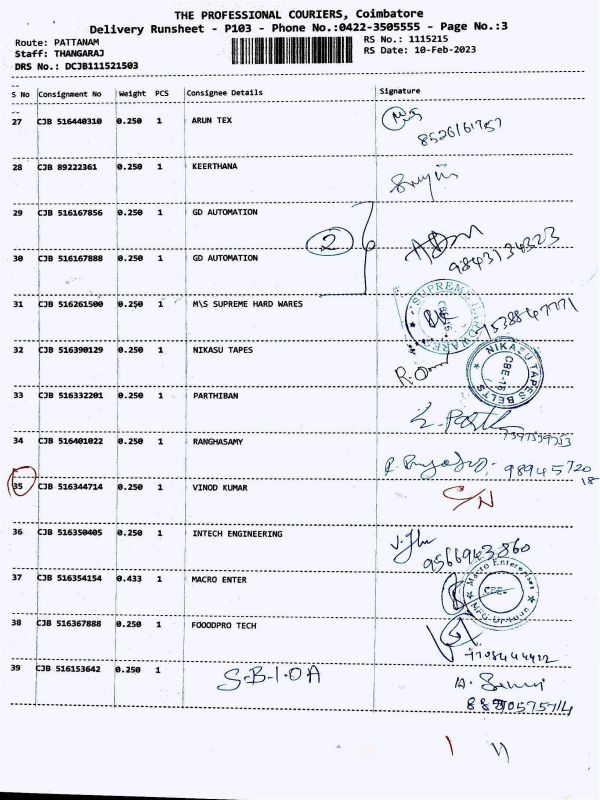 THE PROFESSIONAL COURIERS, Coimbatore
Delivery Runsheet - P103 - Phone No.:0422-3505555 - Page No.:3
Route: PATTANAM RS No.: 1115215
Staff: THANGARAJ RS Date: 10-Feb-2023
DRS No.: DCJB111521503
S No Consignment No Weight PCS Consignee Details Signature
27 CJB 516440310 0.250 1 ARUN TEX
8526161757
28 CJB 89222361 0.250 1 KEERTHANA
29 CJB 516167856 0.250 1 GD AUTOMATION
2
30 CJB 516167888 0.250 1 GD AUTOMATION
9843134323
31 CJB 516261500 0.250 1 M\S SUPREME HARD WARES
SUPREME HARDWARES
7538847771
32 CJB 516390129 0.250 1 NIKASU TAPES
NIKAZU TAPES BELTS CBE-16
33 CJB 516332201 0.250 1 PARTHIBAN
34 CJB 516401022 0.250 1 RANGHASAMY
9894572018
35 CJB 516344714 0.250 1 VINOD KUMAR
C/N
36 CJB 516350405 0.250 1 INTECH ENGINEERING
9566943860
37 CJB 516354154 0.433 1 MACRO ENTER
Macro Enterprises CBE.
38 CJB 516367888 0.250 1 FOOODPRO TECH
7708444422
39 CJB 516153642 0.250 1 S.B.I.OA